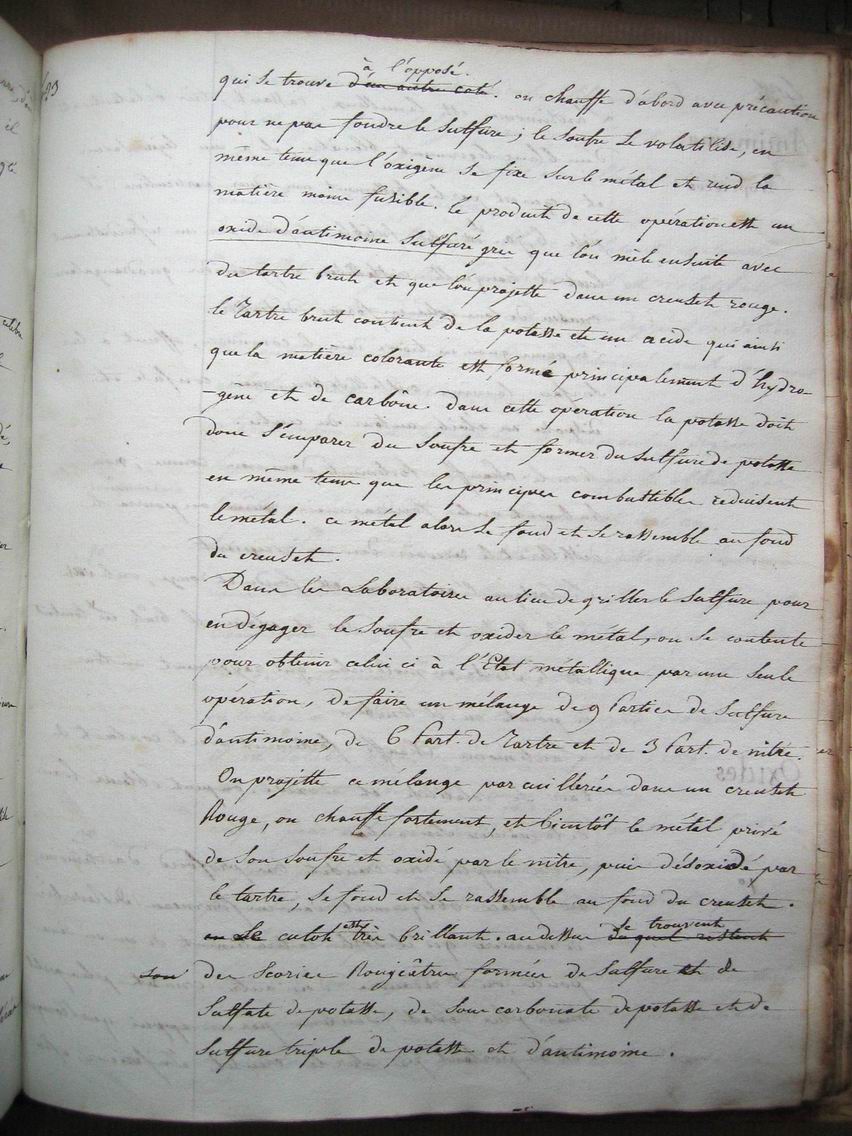 à l'opposé.
qui se trouve d'un autre coté. on chauffe d'abord avec précaution
pour ne pas fondre le sulfure ; le soufre se volatilise, en
même tems que l'oxigène se fixe sur le métal et rend la
matière moins fusible. le produit de cette opération est un
oxide d'antimoine sulfuré gris que l'on mêle ensuite avec
du tartre brut et que l'on projette dans un creuset rouge.
le Tartre brut contient de la potasse et un acide qui ainsi
que la matière colorante est formé principalement d'hydro-
-gène et de carbône. dans cette opération la potasse doit
donc s'emparer du soufre et former du sulfure de potasse
en même tems que les principes combustibles reduisent
le métal. ce métal alors se fond et se rassemble au fond
du creuset.
Dans les Laboratoires au lieu de griller le sulfure pour
en dégager le soufre et oxider le métal, on se contente
pour obtenir celui ci à l'Etat métallique par une seule
opération, de faire un mélange de 9 Parties de sulfure
d'antimoine, de 6 Part. de Tartre et de 3 Part. de nitre.
On projette ce mélange par cuillerées dans un creuset
Rouge, on chauffe fortement, et bientôt le métal privé
de son soufre et oxidé par le nitre, puis désoxidé par
le tartre, se fond et se rassemble au fond du creuset.
est se trouvent
en Le culot très brillant. au dessus duquel restent
son des Scories Rougeâtres formées de Sulfure et de
Sulfate de potasse, de sous carbonate de potasse et de
sulfure triple de potasse et d'antimoine.